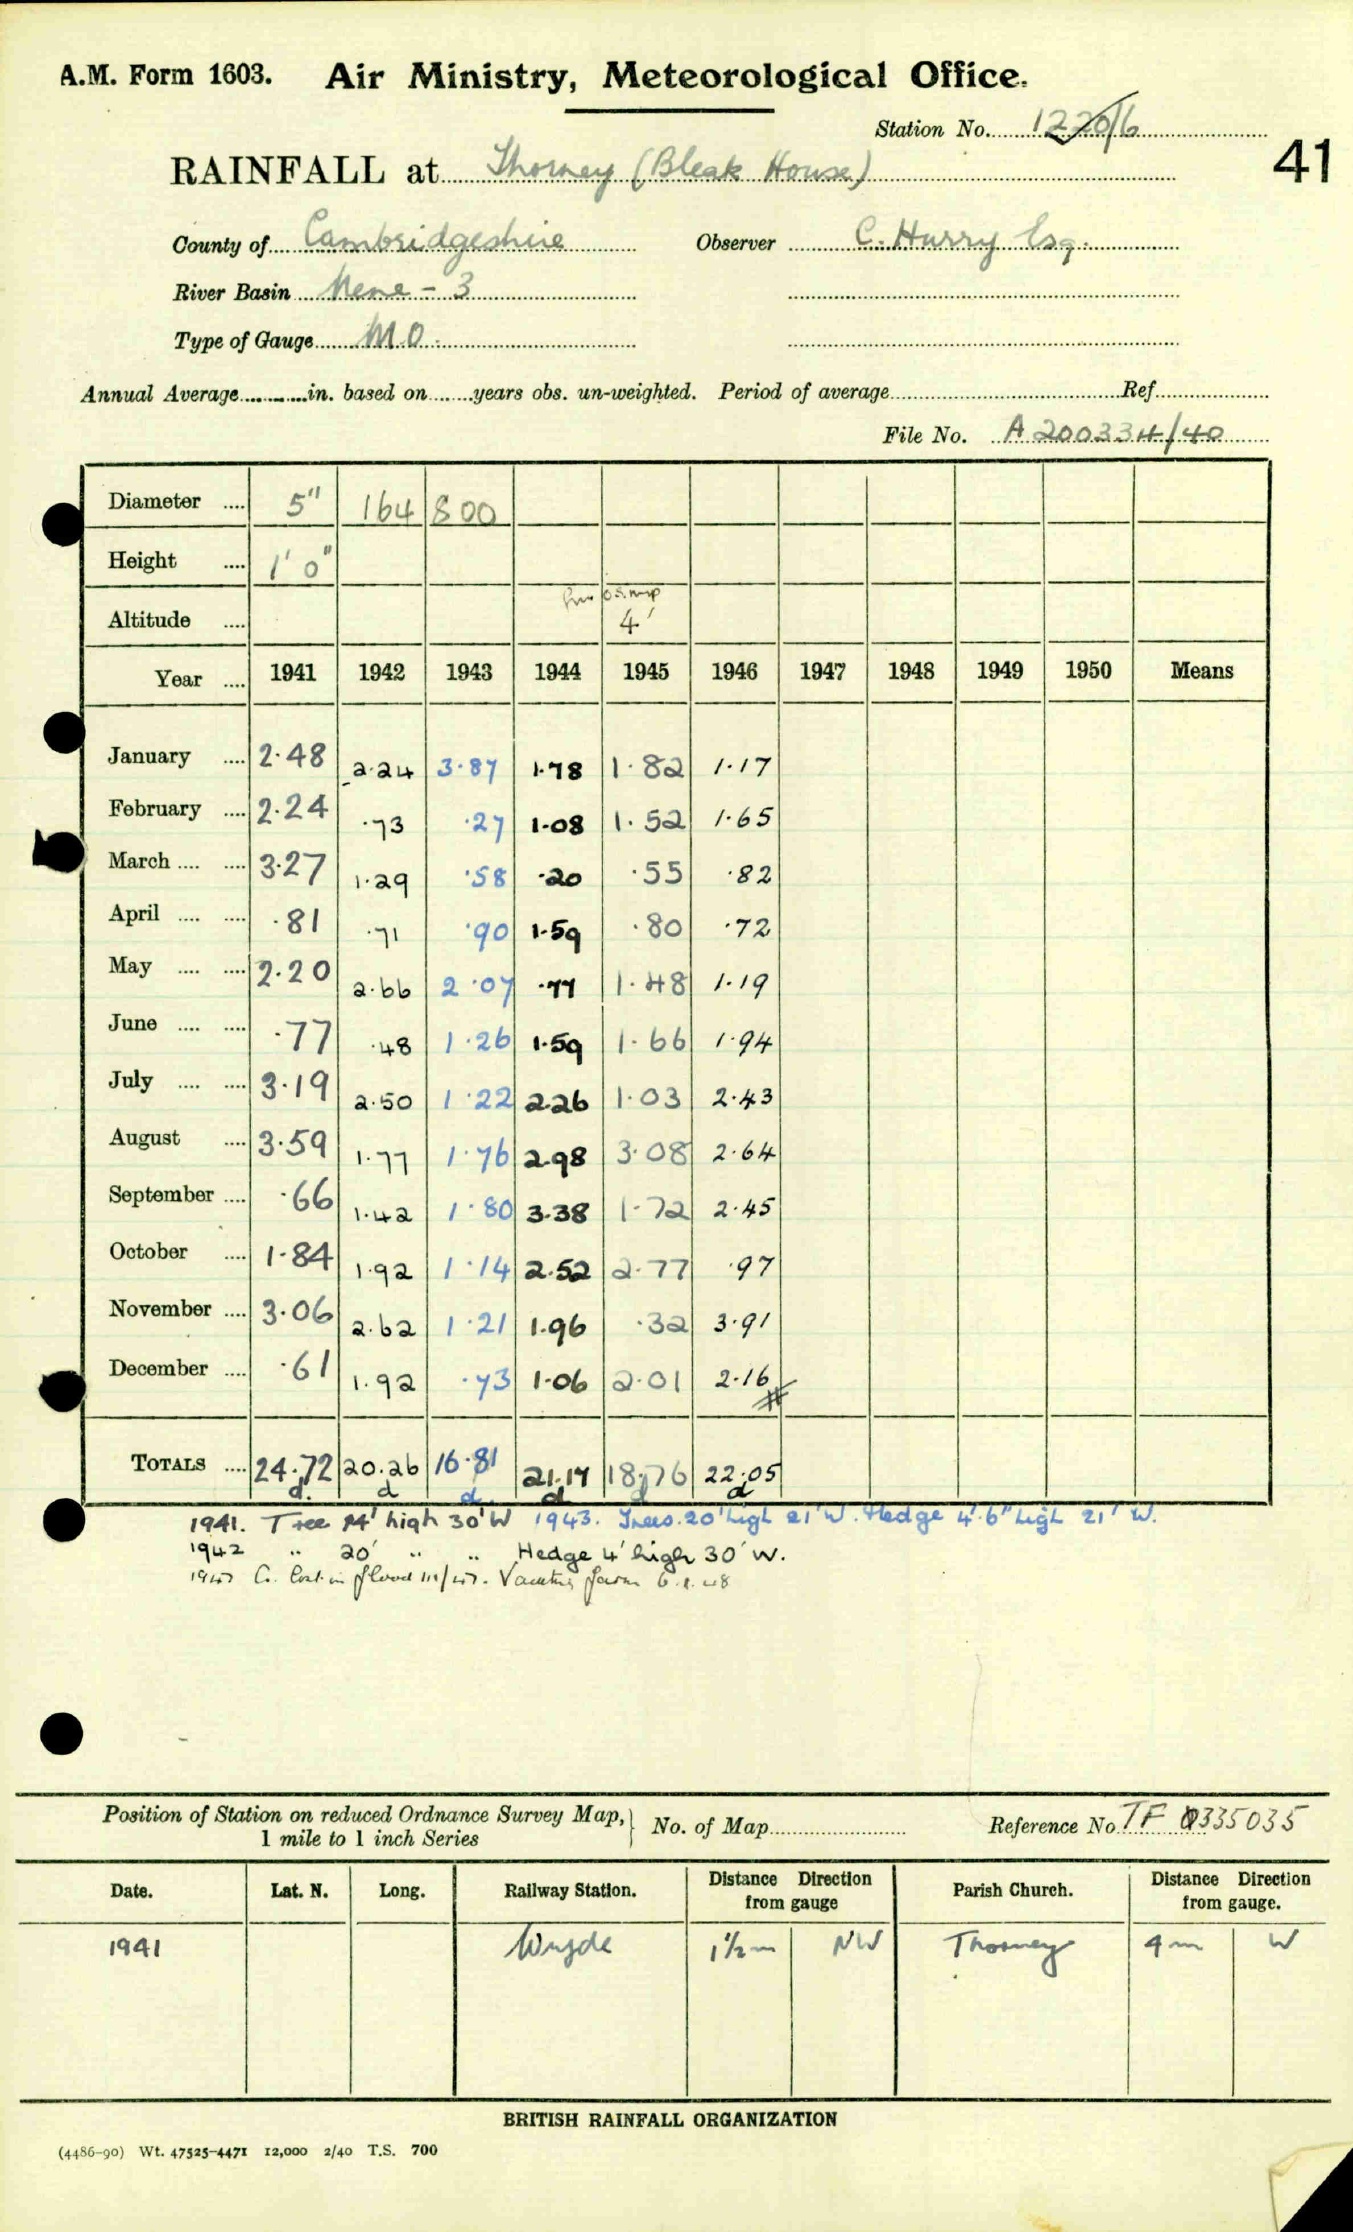 A.M. Form 1603. Air Ministry, Meteorological Office.
Station No. 1220/6
41
RAINFALL at Thorney (Bleak House)
County of Cambridgeshire Observer C. Hurry Esq.
River Basin Nene - 3
Type of Gauge M O.
Annual Average in. based on years obs. un-weighted. Period of average Ref
File No. A 200334/40
Diameter .... 5" 164 800
Height .... 1' 0"
from O.S. map
Altitude .... 4'
Year .... 1941 1942 1943 1944 1945 1946 1947 1948 1949 1950 Means
January .... 2.48 2.24 3.87 1.78 1.82 1.17
February .... 2.24 .73 .27 1.08 1.52 1.65
March .... .... 3.27 1.29 .58 .20 .55 .82
April .... .... .81 .71 .90 1.59 .80 .72
May .... .... 2.20 2.66 2.07 .77 1.48 1.19
June .... .... .77 .48 1.26 1.59 1.66 1.94
July .... .... 3.19 2.50 1.22 2.26 1.03 2.43
August .... 3.59 1.77 1.76 2.98 3.08 2.64
September .... .66 1.42 1.80 3.38 1.72 2.45
October .... 1.84 1.92 1.14 2.52 2.77 .97
November .... 3.06 2.62 1.21 1.96 .32 3.91
December .... .61 1.92 .73 1.06 2.01 2.16
TOTALS .... 24.72 20.26 16.81 21.17 18.76 22.05
d. d d d d d
1941. Tree 14' high 30' W 1943. Trees 20' high 21' W. Hedge 4'.6" high 21' W.
1942 " 20' " " Hedge 4' high 30' W.
1947 G. lost in flood III/47. Vacating farm 6.1.48
Position of Station on reduced Ordnance Survey Map, 1 mile to 1 inch Series } No. of Map Reference No TF 335035
Date. Lat. N. Long. Railway Station. Distance Direction from gauge Parish Church. Distance Direction from gauge.
1941 Wryde 1½m NW Thorney 4m W
BRITISH RAINFALL ORGANIZATION
(4486-90) Wt. 47525-4471 12,000 2/40 T.S. 700